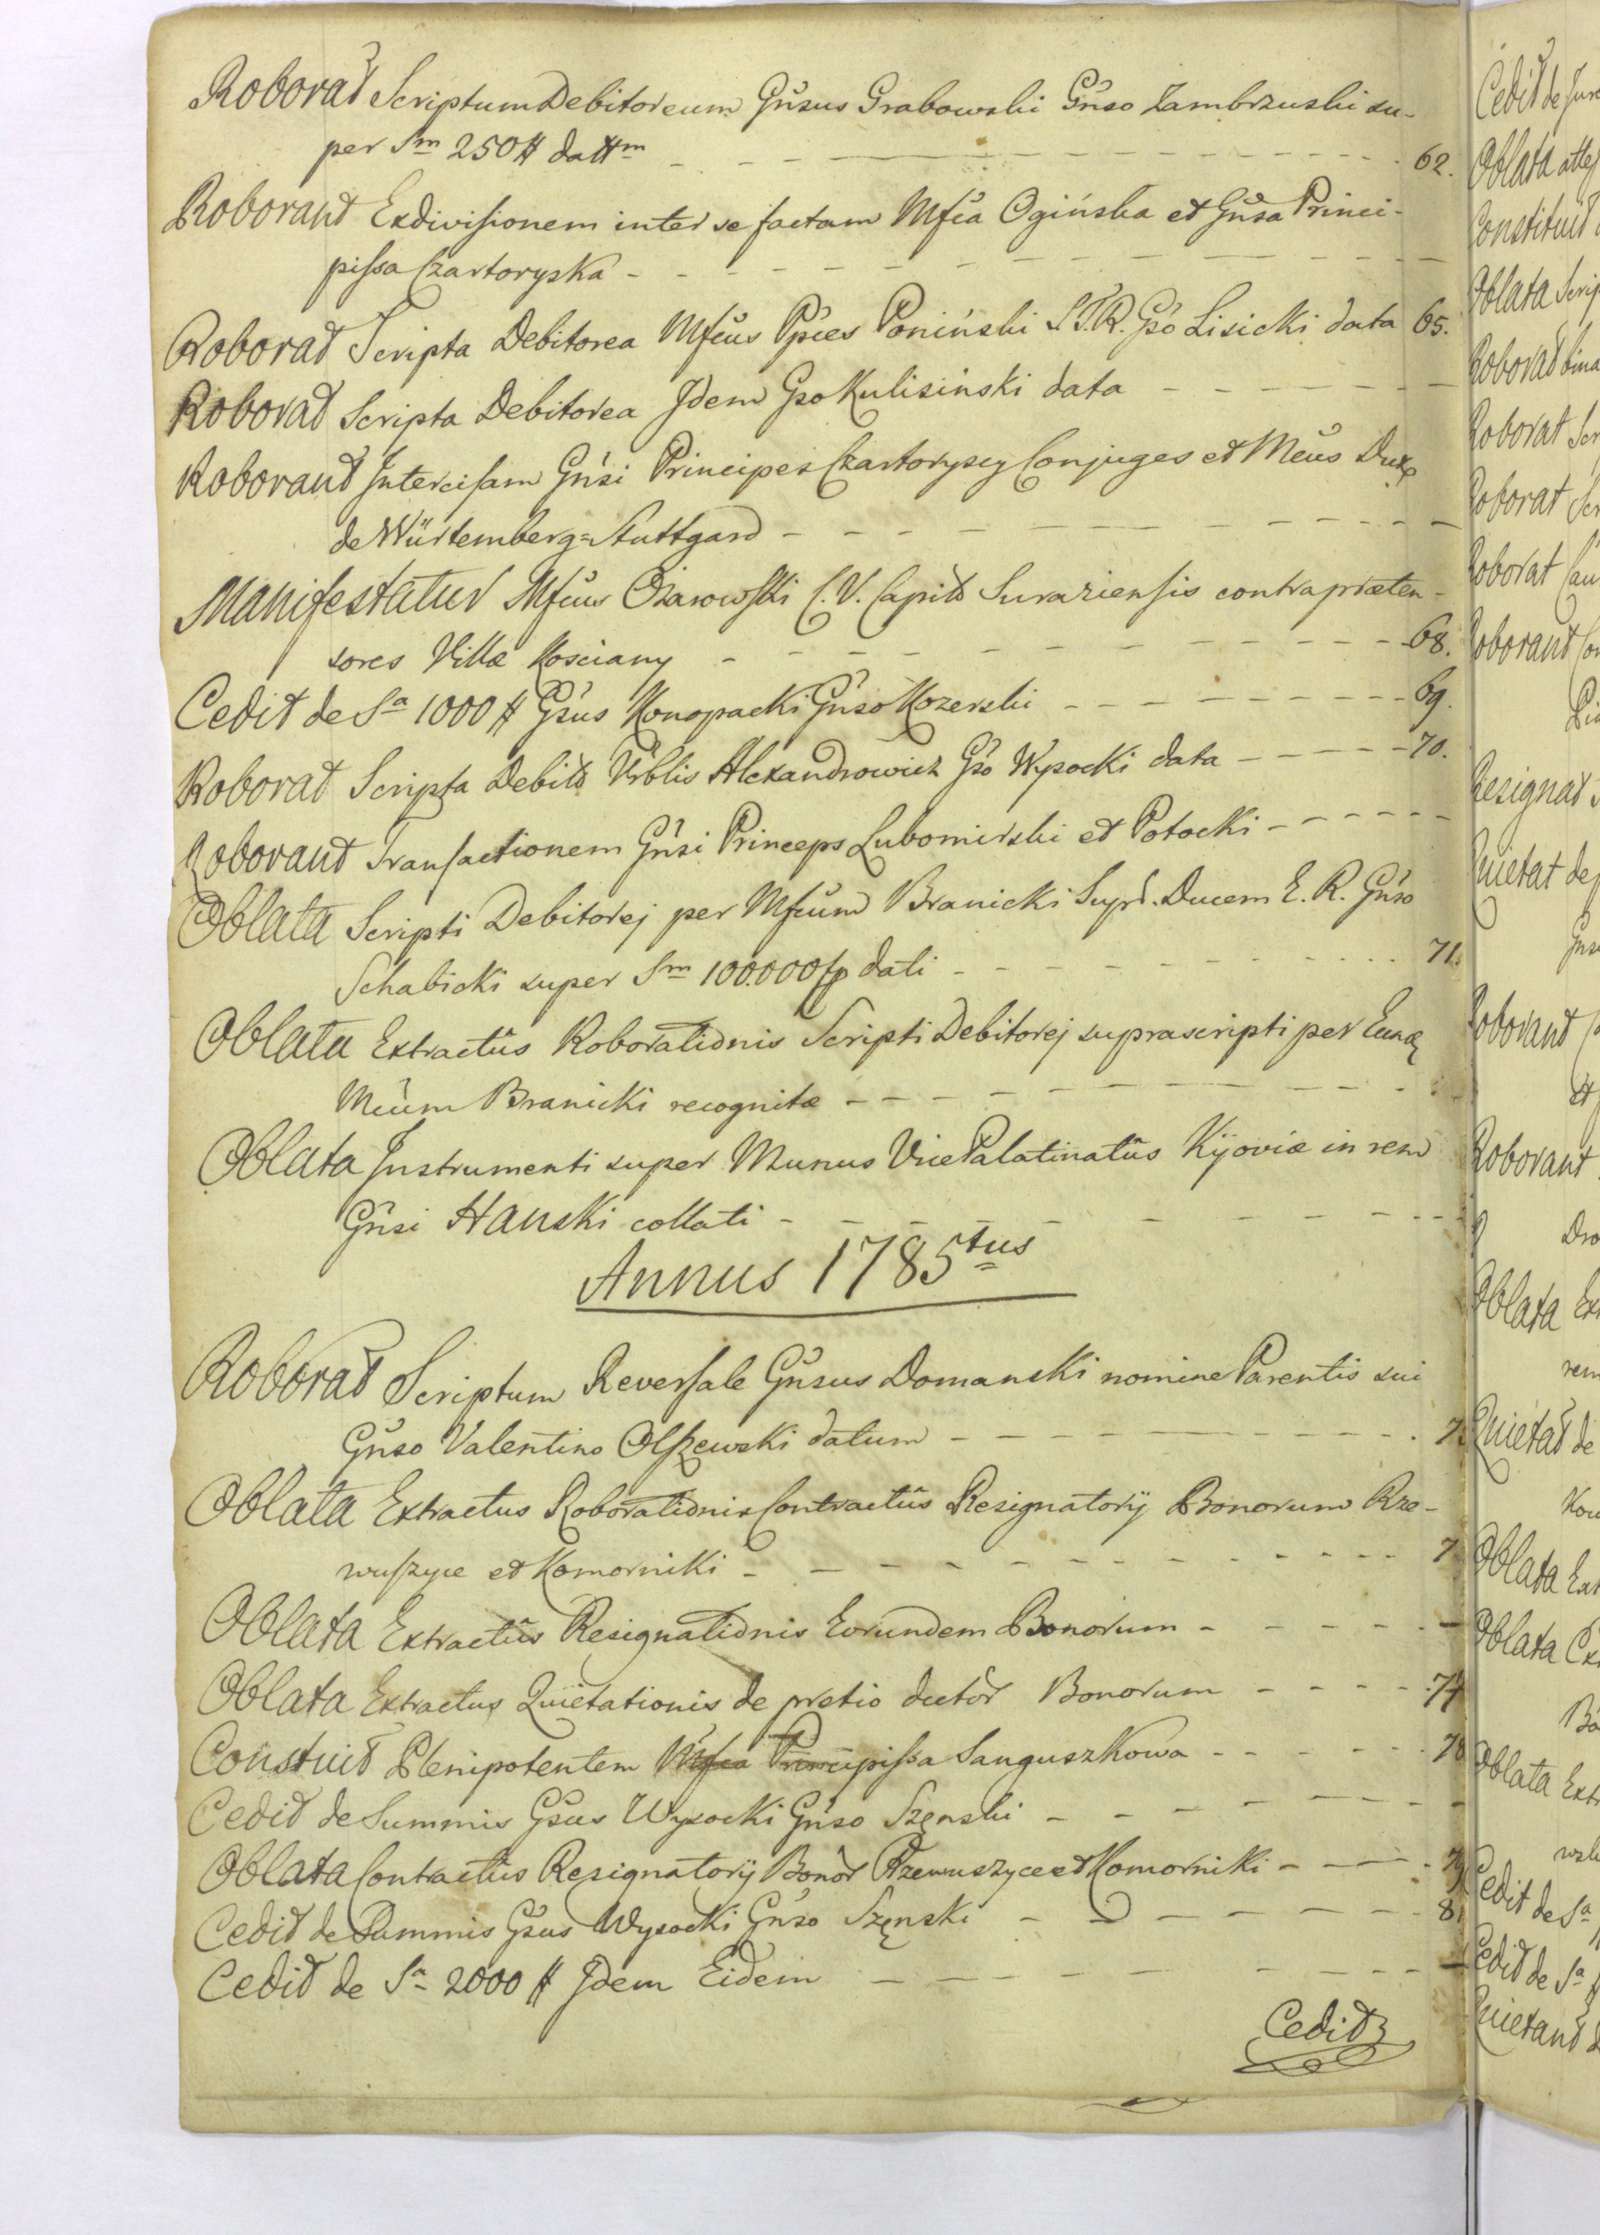 Roborat Scriptum Debitoreum Gn̄sus Grabowski Gn̄so Zambrzuski su-
per Sm̄ 250 # dattm 62.
Roborant Exdivisionem inter se factam Mfca Ogińska et Gn̄sa Princi-
pissa Czartoryska
Roborat Scripta Debitorea Mfcus Ppces Poniński S.T.R. Gso Lisicki data 65.
Roborat Scripta Debitorea Jdem Gso Kulisiński data
Roborant Intercisam Gn̄si Principes Czartoryscy Conjuges et Mcus Dux
de Würtemberg=Stuttgard
Manifestatur Mfcus Ożarowski C.V. Capits Suraziensis contra præten-
sores Villæ Kosciany 68.
Cedit de Sa 1000 # Gsus Konopacki Gn̄so Kozerski 69.
Roborat Scripta Debits Vrblis Alexandrowicz Gso Wysocki data 70.
Roborant Transactionem Gn̄si Princeps Lubomirski et Potocki
Oblata Scripti Debitorej per Mfcum Branicki Supr. Ducem E. R. Gn̄so
Schabicki super Sm̄ 100.000 fp dati 71.
Oblata Extractūs Roborationis Scripti Debitorej suprascripti per Eund
Mcum Branicki recognitæ
Oblata Instrumenti super Munus Vice Palatinatūs Kijoviæ in rem
Gn̄si Hanski collati
Annus 1785tus
Roborat Scriptum Reversale Gn̄sus Domanski nomine Parentis sui
Gn̄so Valentino Olszewski datum 7
Oblata Extractus Roborationis Contractūs Resignatorÿ Bonorum Rze-
wuszyce et Komorniki 7
Oblata Extractūs Resignationis Eorundem Bonorum
Oblata Extractus Quietationis de pretio dictor Bonorum 74
Constuit Plenipotentem Mfca Principissa Sanguszkowa 78
Cedit de Summis Gsus Wysocki Gn̄so Szęnski
Oblata Contractūs Resignatorÿ Bonor Rzewuszyce et Komorniki
Cedit de Summis Gsus Wysocki Gn̄so Szęnski 81
Cedit de Sa 2000 # Jdem Eidem
Cedit
Cedit de Jure
Oblata
Constituit
Oblata Scrip
Roborat bina
Roborat Scr
Roborat Scr
Roborat Cau
Roborant
Resignat
Quietat de
Roborant
et
Roborant
Oblata Ext
rem
Quietat de
Oblata Ext
Oblata
Oblata Ext
Cedit de Sa
Cedit de Sa
Quietant